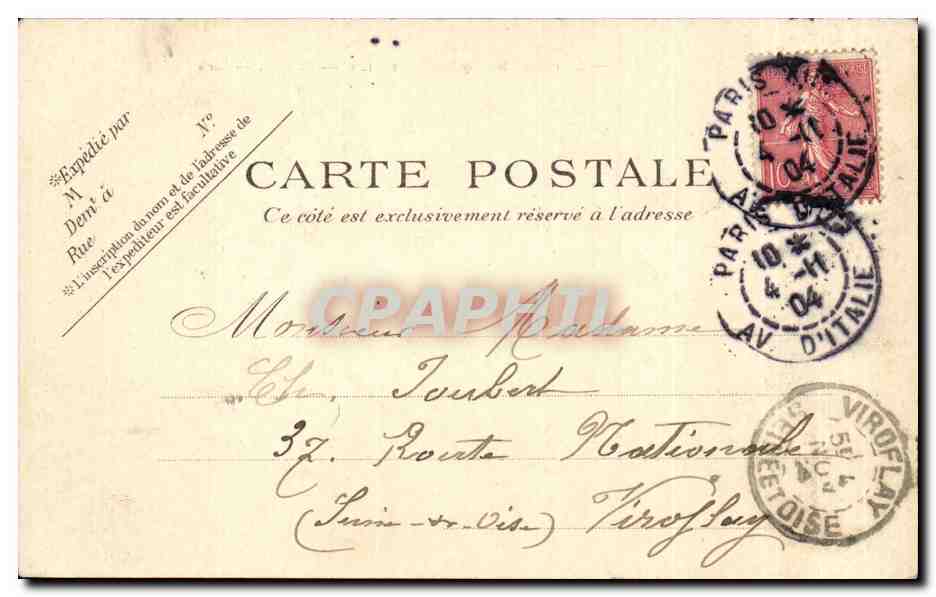 *Expédié par
M
Demt à
Rue
N°
*L'inscription du nom et de l'adresse de
l'expéditeur est facultative
CARTE POSTALE
Ce côté est exclusivement réservé à l'adresse
PARIS
10 *
4 -11
04
AV. D'ITALIE
10
PARIS
10 *
4 -11
04
AV. D'ITALIE
CPAPHIL
Monsieur Madame
Ch. Joubert
37. Route Nationale
(Seine-et-Oise) Viroflay
VIROFLAY
SEINE ET OISE